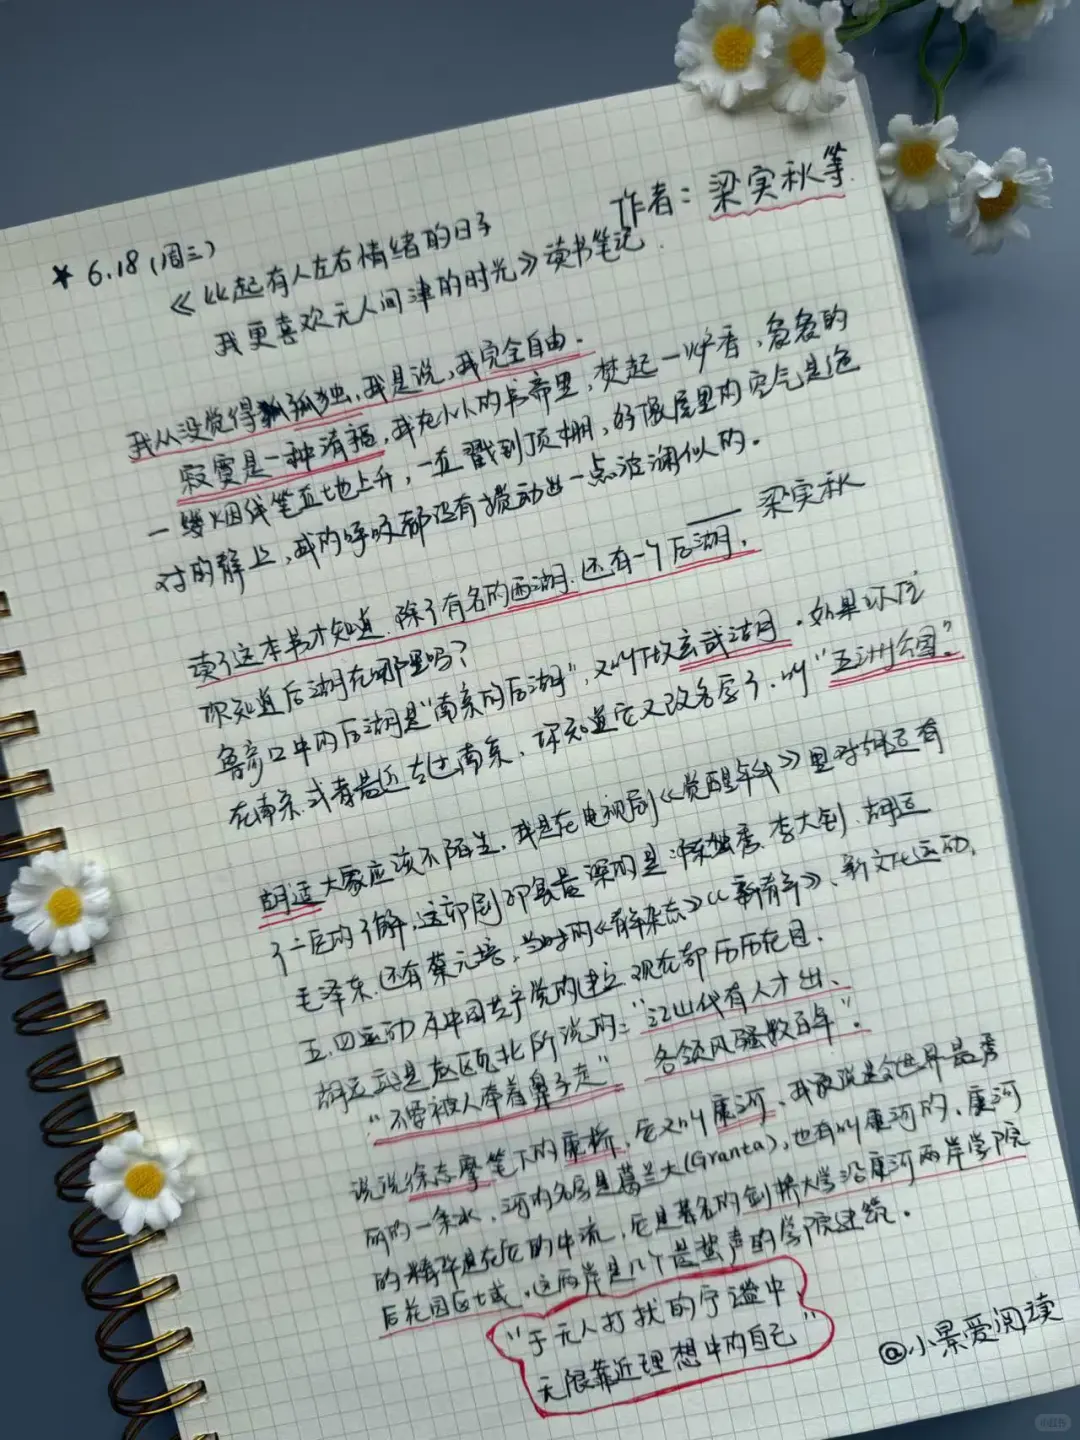 作者：梁实秋等
* 6.18（周三）
《比起有人左右情绪的日子
我更喜欢无人问津的时光》读书笔记.
我从没觉得孤独，我是说，我完全自由.
寂寞是一种清福，我在小小的书斋里，焚起一炉香，袅袅的
一缕烟线笔直地上升，一直戳到顶棚，好像屋里的空气是绝
对的静止，我的呼吸都没有搅动出一点波澜似的.
—— 梁实秋
读了这本书才知道，除了有名的西湖，还有一个后湖，
你知道后湖在哪里吗？
鲁彦口中的后湖是"南京的后湖"，又叫做玄武湖，如果你住
在南京，或者最近去过南京，你知道它又改名字了，叫"五洲公园".
胡适大家应该不陌生，我是在电视剧《觉醒年代》里对胡适有
了一层的了解，这部剧印象最深的是陈独秀、李大钊、胡适
毛泽东，还有蔡元培，当时的《青年杂志》《新青年》、新文化运动，
五四运动及中国共产党的建立，现在都历历在目.
胡适 是赵瓯北所说的："江山代有人才出、
各领风骚数百年".
"不要被人牵着鼻子走"
说说徐志摩笔下的康桥，它又叫康河，我敢说是全世界最秀
丽的一条水，河的名字是葛兰大(Granta)，也有叫康河的，康河
的精华是在它的中流，它是著名的剑桥大学沿康河两岸学院
后花园区域，这两岸是几个最蜚声的学院建筑.
"于无人打扰的宁谧中
无限靠近理想中的自己"
@小景爱阅读
小红书